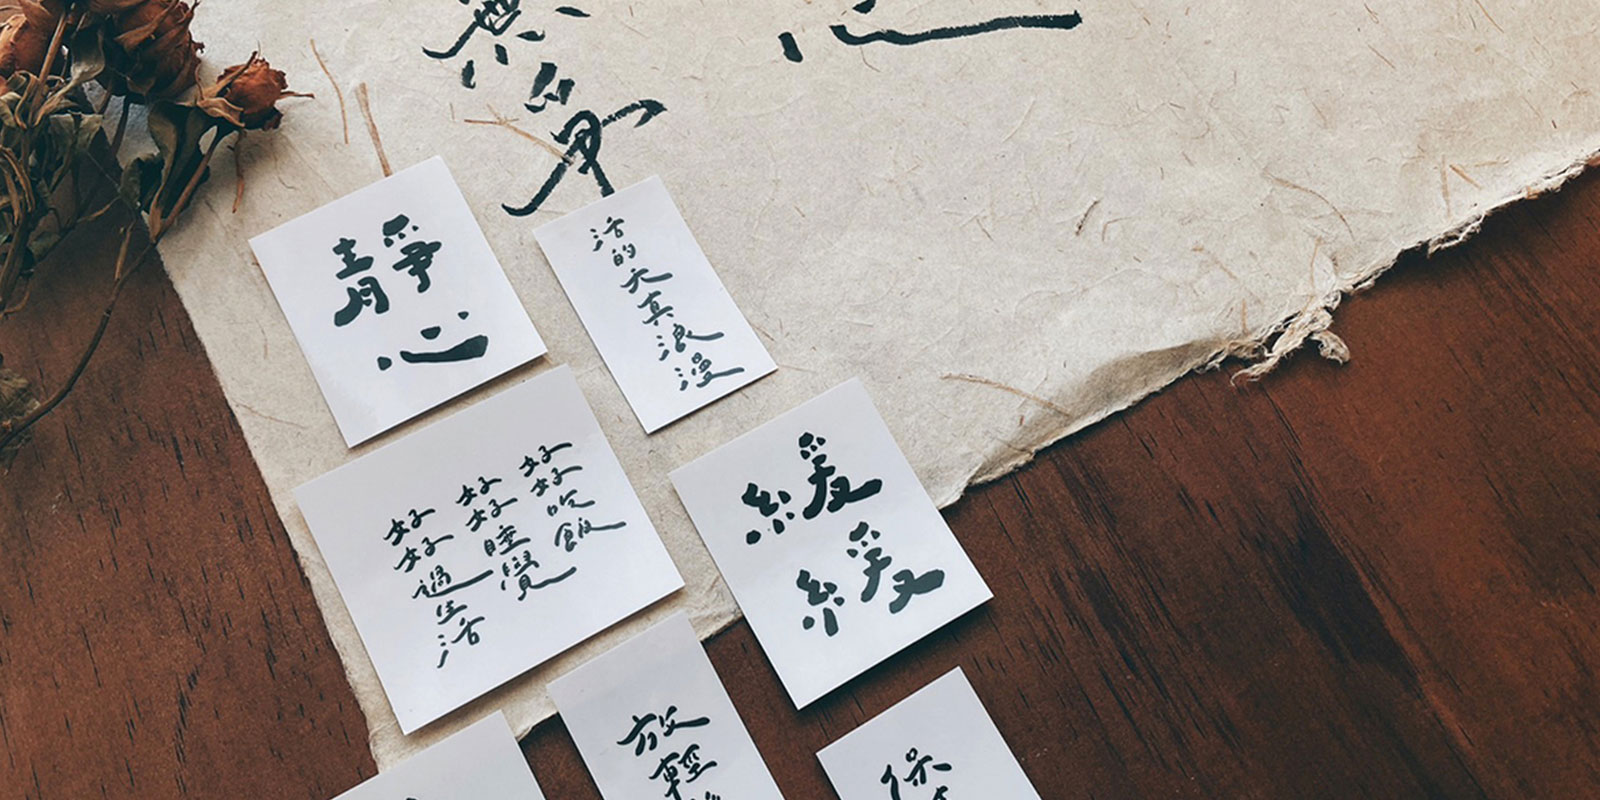 無爭
靜心
活的天真浪漫
好好吃飯
好好睡覺
好好過生活
緩緩
放輕
保